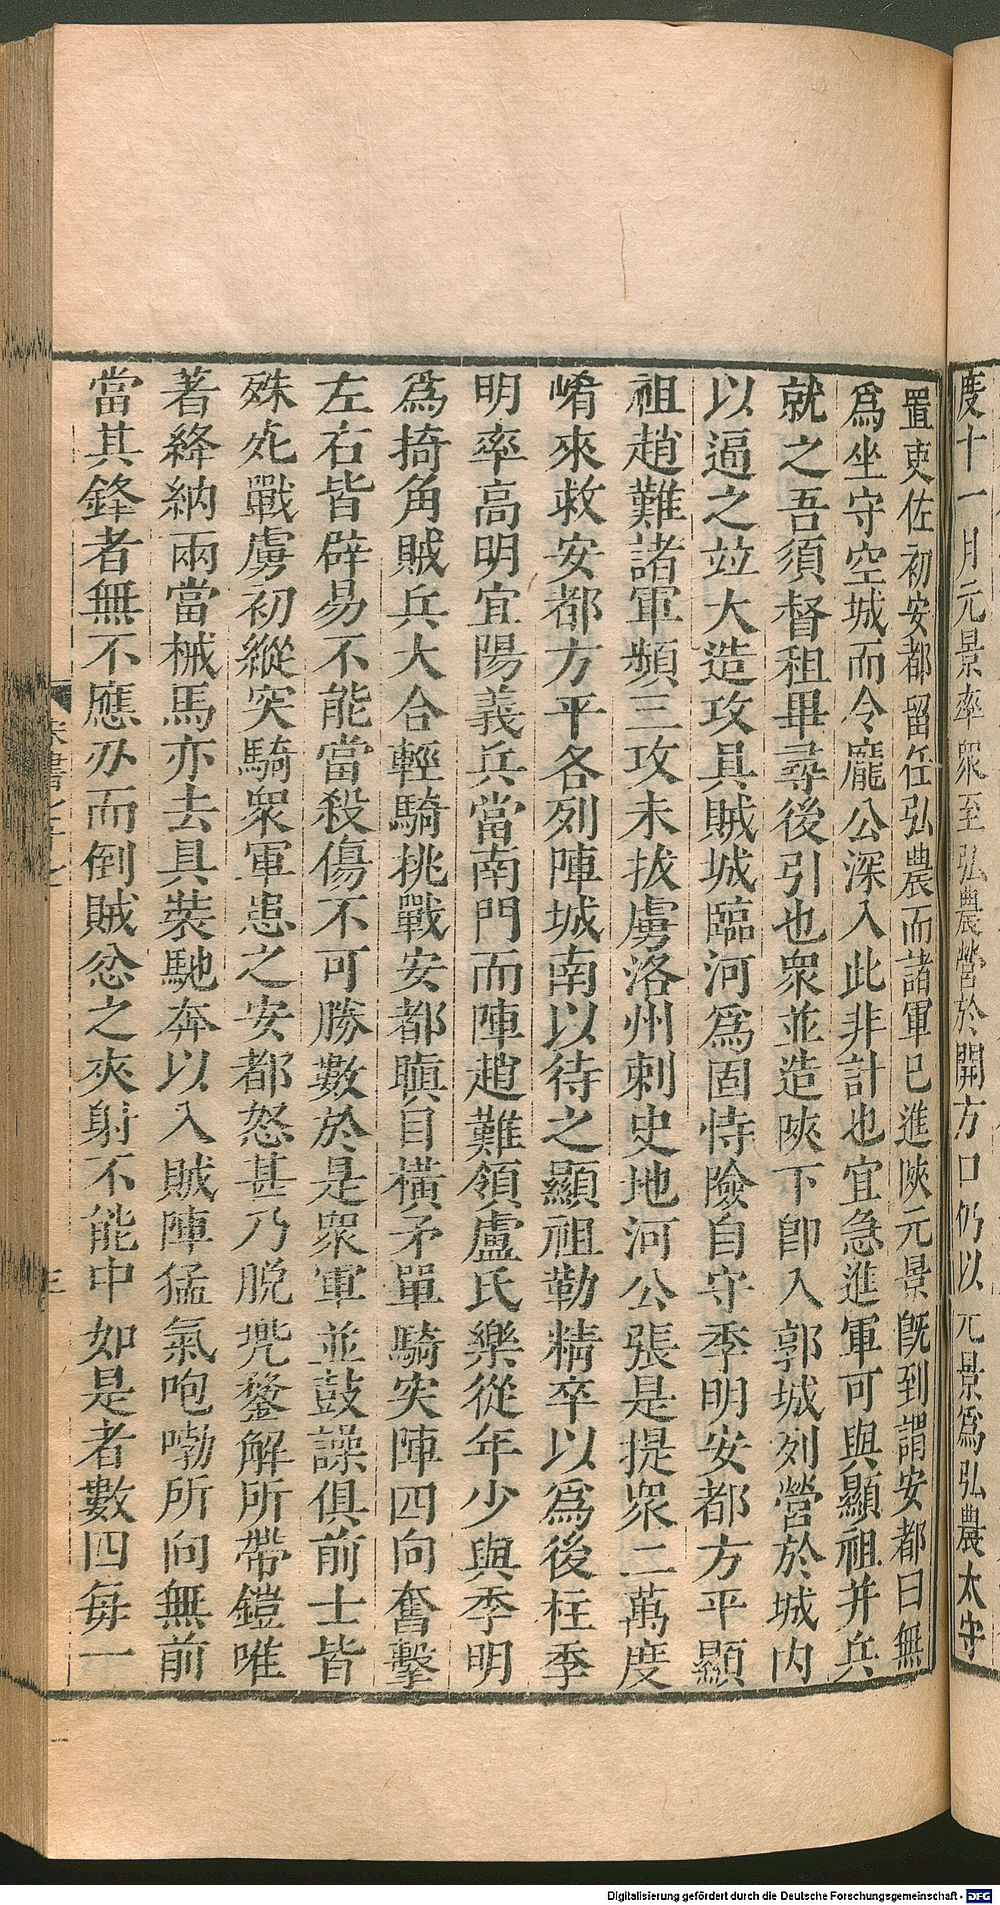 度十一月元景率衆至弘農營於開方口仍以元景爲弘農太守
置吏佐初安都留任弘農而諸軍已進陝元景旣到謂安都曰無
爲坐守空城而令龐公深入此非計也宜急進軍可與顯祖并兵
就之吾須督租畢尋後引也衆並造陝下卽入郭城列營於城内
以逼之竝大造攻具賊城臨河爲固恃險自守季明安都方平顯
祖趙難諸軍頻三攻未拔虜洛州刺史地河公張是提衆二萬度
崤來救安都方平各列陣城南以待之顯祖勒精卒以爲後柱季
明率高明宜陽義兵當南門而陣趙難領盧氏樂從年少與季明
爲掎角賊兵大合輕騎挑戰安都瞋目橫矛單騎突陣四向奮擊
左右皆辟易不能當殺傷不可勝數於是衆軍並鼓譟俱前士皆
殊死戰虜初縱突騎衆軍患之安都怒甚乃脫兠鍪解所帶鎧唯
著絳納兩當械馬亦去具裝馳奔以入賊陣猛氣咆嘞所向無前
當其鋒者無不應刅而倒賊忿之夾射不能中如是者數四每一
三
Digitalisierung gefördert durch die Deutsche Forschungsgemeinschaft - DFG